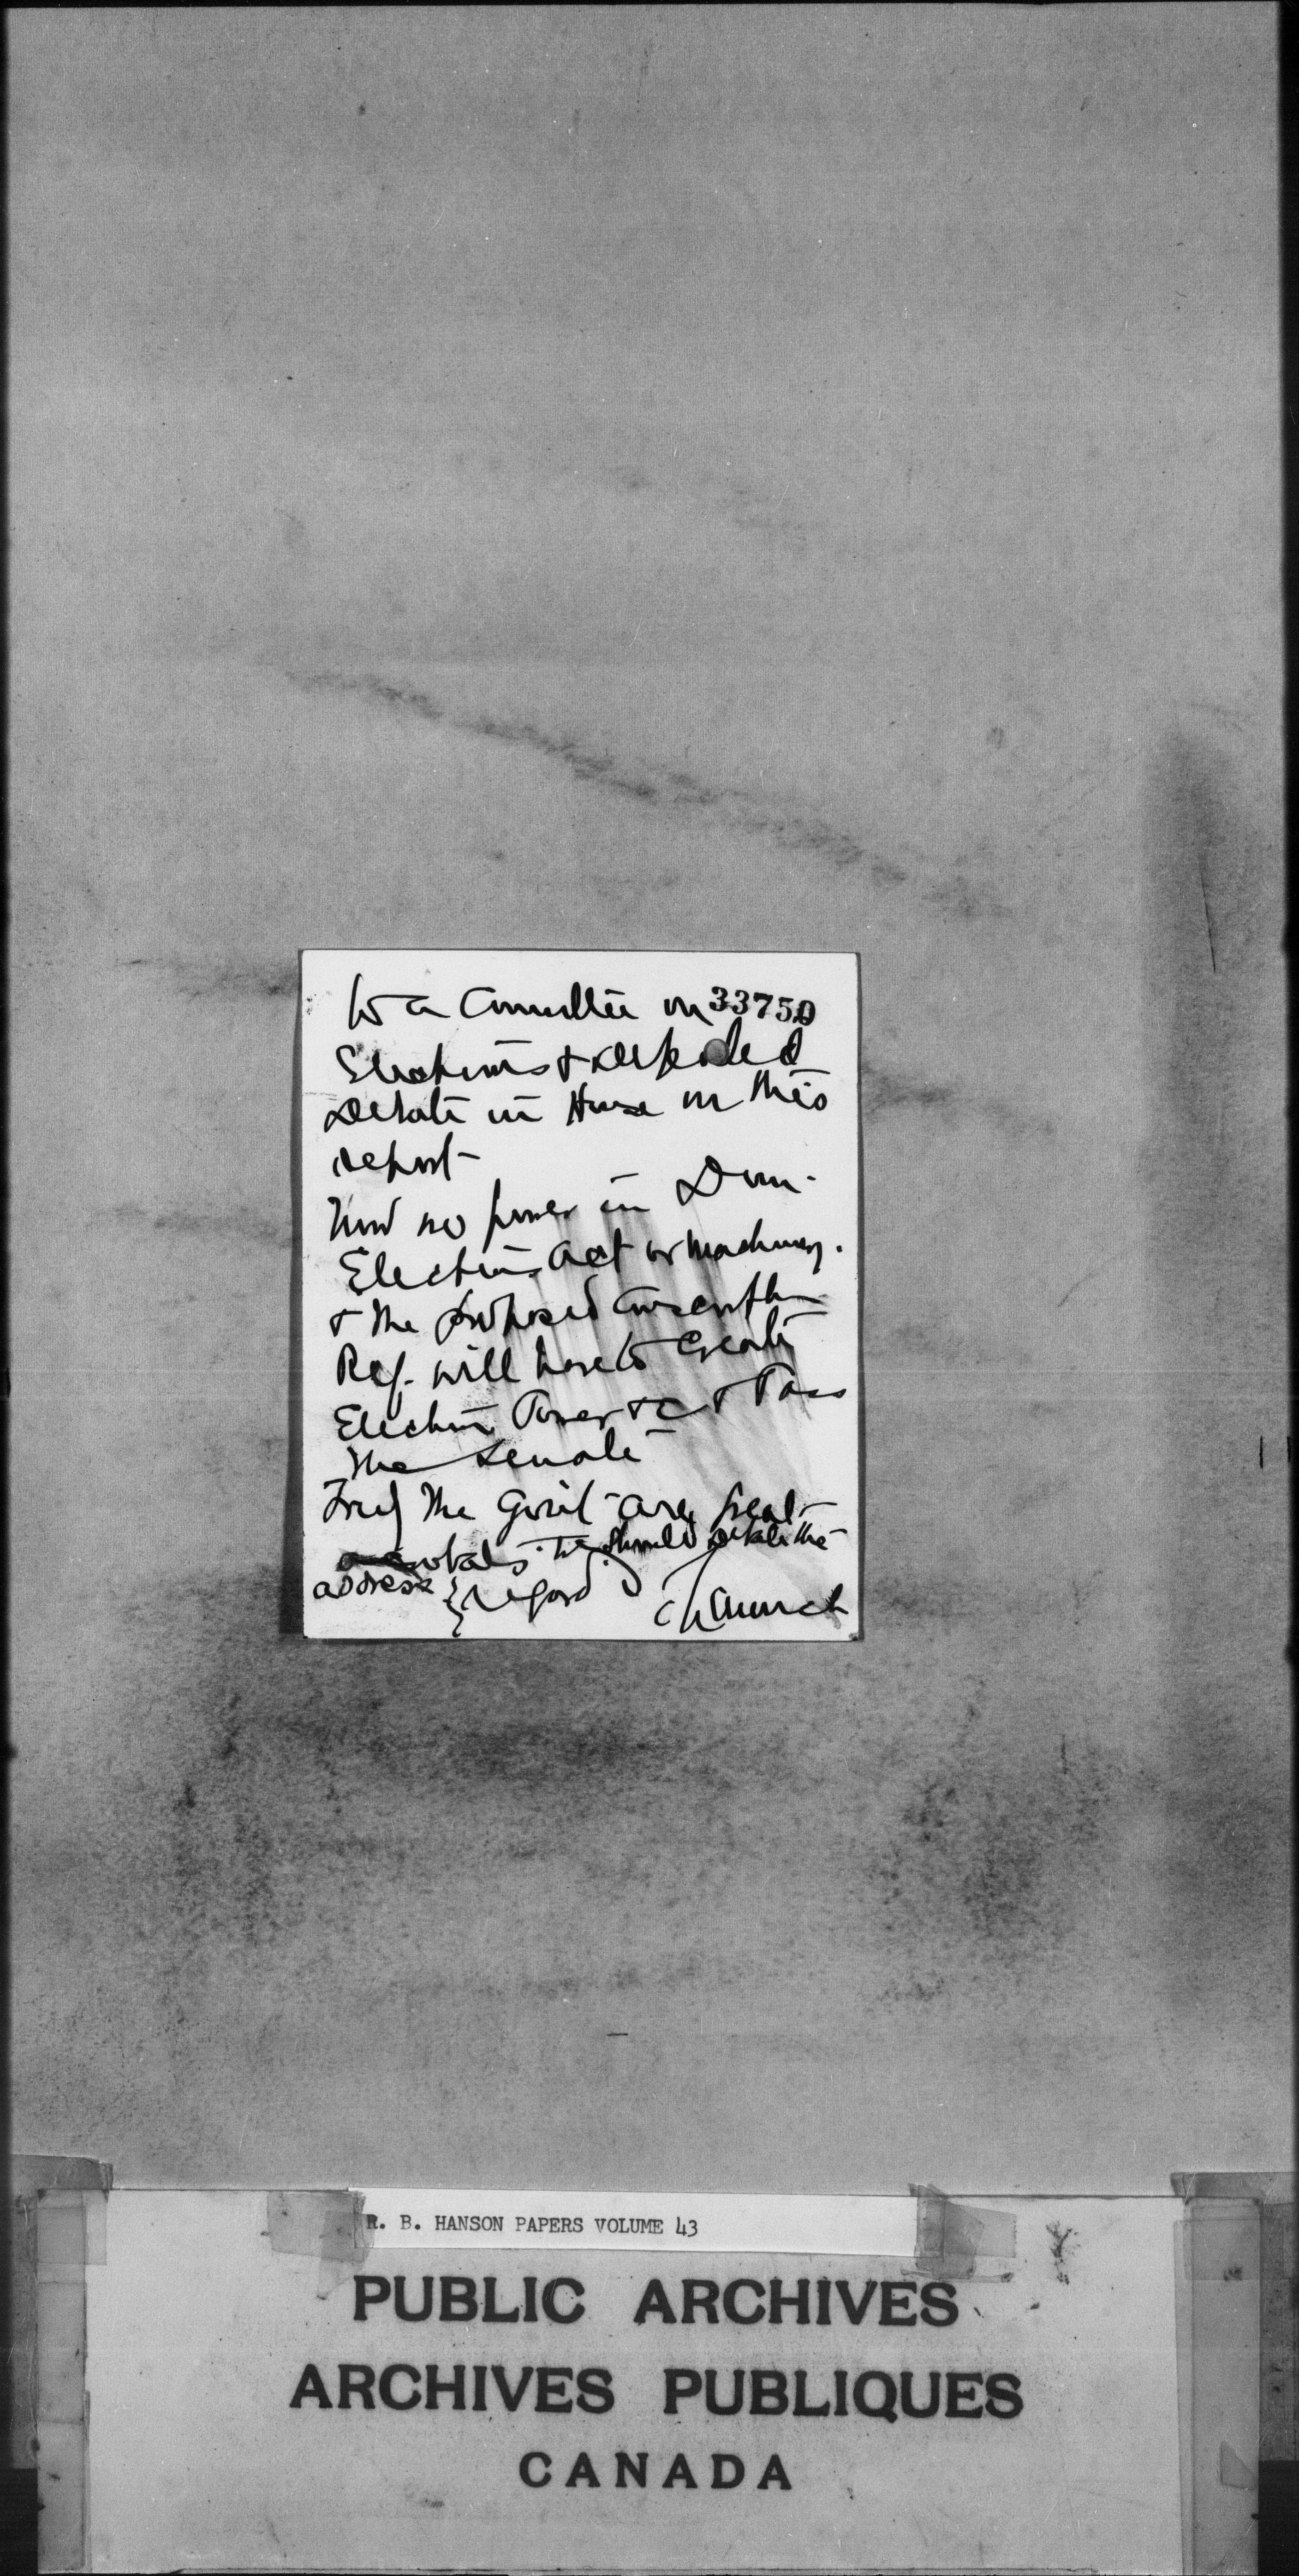 to a Committee on 33750
Elections &
Debate in House on this
report
now no power in Dom.
Elections Act or machinery.
& the proposed
Ref. will have to create
Election Power &c & Pass
the Senate
the Gov't are
We should debate the
address regard TLChurch
R. B. HANSON PAPERS VOLUME 43
PUBLIC ARCHIVES
ARCHIVES PUBLIQUES
CANADA